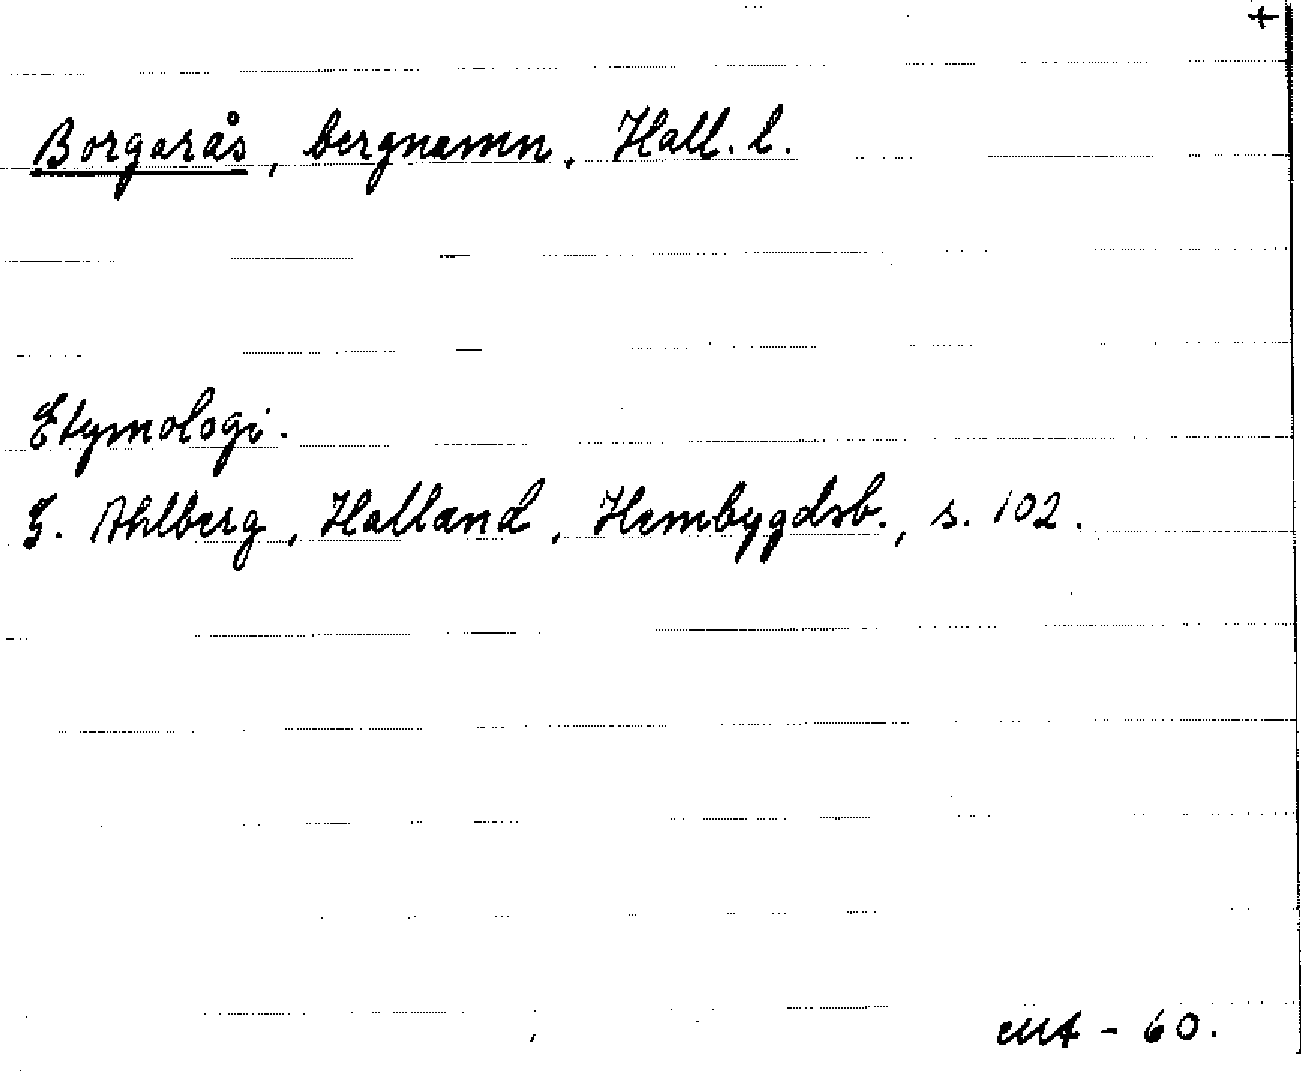 +
Borgarås, bergnamn, Hall. l.
Etymologi.
G. Ahlberg, Halland, Hembygdsb., s. 102.
MA - 60.